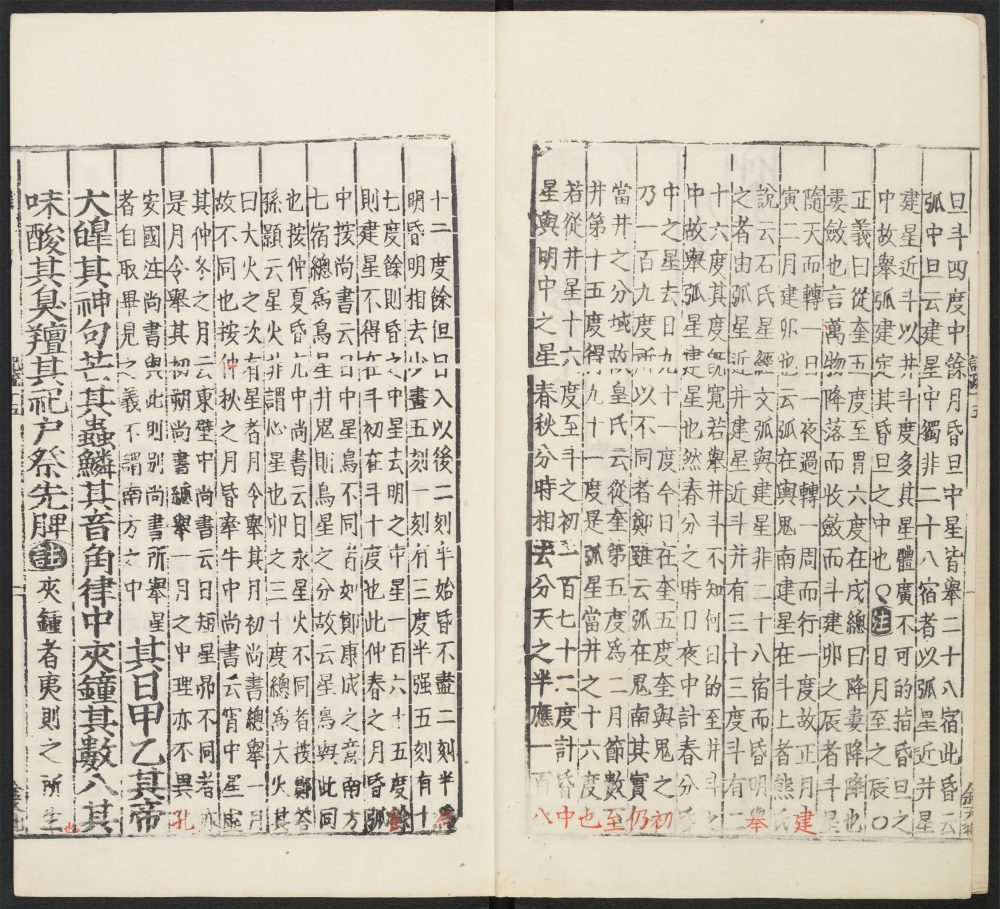 旦斗四度中餘月昏旦中星皆舉二十八宿此昏云
弧中旦云建星中獨非二十八宿者以弧星近井星
建星近斗以井斗度多其星體廣不可的指昏旦之
中故舉弧建定其昏旦之中也 注日月至之辰○
正義曰從奎五度至胃六度在戌總曰降婁降降也
婁斂也言萬物降落而收斂而斗建卯之辰者斗
隨天而轉一日一夜過轉一周而行一度故正月建
寅二月建卯也云弧在輿鬼南建星在斗上者熊氏
說云石氏星經文弧與建星非二十八宿而昏明舉
之者由弧星近井建星近斗井有三十三度斗有二
十六度其度既寬若舉井斗不知何日的至井斗之
中故舉弧星建星也然春分之時日夜中計春分初
中之星去日九十一度今日在奎五度奎與鬼之初
乃一百九度所以不同者鄭雖云弧在鬼南其實仍
當井之分域故皇氏云從奎第五度爲二月節數至
井第十五度得九十一度是弧星當井之十六度也
若從井星十六度至斗之初一百七十二度計昏中
星與明中之星春秋分時相去分天之半應一百八
十二度餘但日入以後二刻半始昏不盡二刻半爲
明昏明相去少晝五刻一刻有三度半强五刻有十
七度餘則昏之中星去明之中星一百六十五度餘
則建星不得在斗初在斗十度也此仲春之月昏弧
中按尚書云日中星鳥不同者如鄭康成之意南方
七宿總爲鳥星井鬼則鳥星之分故云星鳥與此同
也按仲夏昏亢中尚書云日永星火不同者按鄭荅
孫顥云星火非謂心星也卯之三十度總爲大火其
曰大火之次有星者月令舉其月初尚書總舉一月
故不同也按仲秋之月昏牽牛中中尚書云宵中星虛
其仲冬之月云東壁中尚書云日短星昴不同者亦
是月令舉其初朔尚書總舉一月之中理亦不異孔
安國注尚書與此則别尚書所舉星
者自取畢見之義不謂南方之中
其日甲乙其帝
大皥其神句芒其蟲鱗其音角律中夾鐘其數八其
味酸其臭羶其祀户祭先脾注夾鍾者夷則之所生也